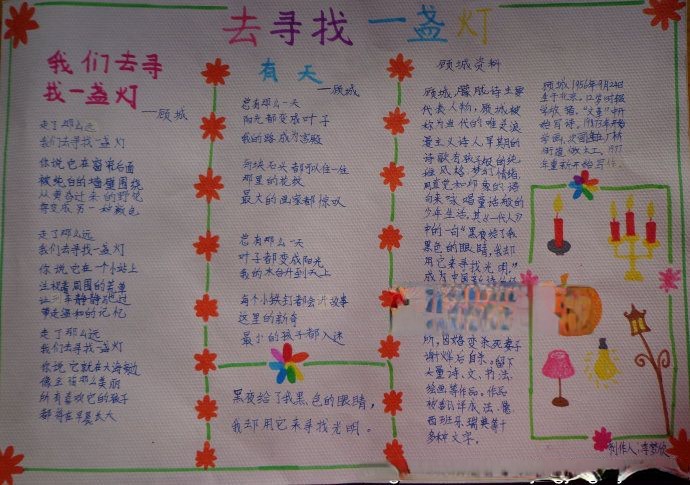 去寻找一盏灯
我们去寻
找一盏灯
——顾城
走了那么远
我们去寻找一盏灯
你说它在窗帘后面
被纯白的墙壁围绕
从黄昏过来的野花
将变成另一种颜色
走了那么远
我们去寻找一盏灯
你说它在一个小站上
注视着周围的荒草
让列车静静驰过
带走温和的记忆
走了那么远
我们去寻找一盏灯
你说它就在大海旁边
像金橘那么美丽
所有喜欢它的孩子
都将在早晨长大
有天
——顾城
总有那么一天
阳光都变成叶子
我的路成为宫殿
每块石头都可以住一生
那里的花纹
最大的画家都惊叹
总有那么一天
叶子都变成阳光
我的木台升到天上
每个小铁钉都会讲故事
这里的新奇
最小的孩子都入迷
黑夜给了我黑色的眼睛,
我却用它来寻找光明。
顾城资料
顾城,朦胧诗主要
代表人物,顾城被
称为当代的唯灵浪
漫主义诗人,早期的
诗歌有孩子般的纯
稚风格、梦幻情绪,
用直觉和印象的诗
句来咏唱童话般的
少年生活。其《一代人》
中的一句“黑夜给了我
黑色的眼睛,我却
用它来寻找光明。”
成为中国新诗的
所,因婚变杀死妻子
谢烨后自杀。留下
大量诗、文、书法、
绘画等作品。作品
被译成英、法、德、
西班牙、瑞典等十
多种文字。
顾城,1956年9月24日
生于北京。
年重新开始写作。
制作人:李梦欣